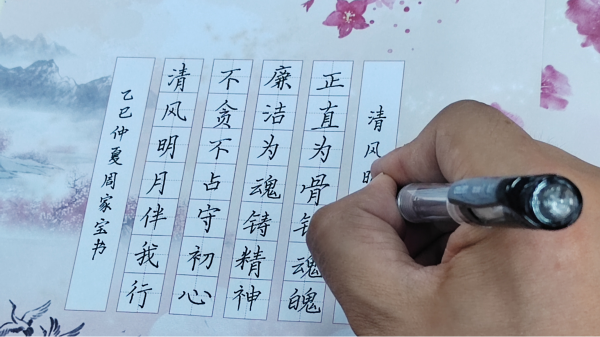 清风
正直为骨铸魂魄
廉洁为魂铸精神
不贪不占守初心
清风明月伴我行
乙巳仲夏周家宝书